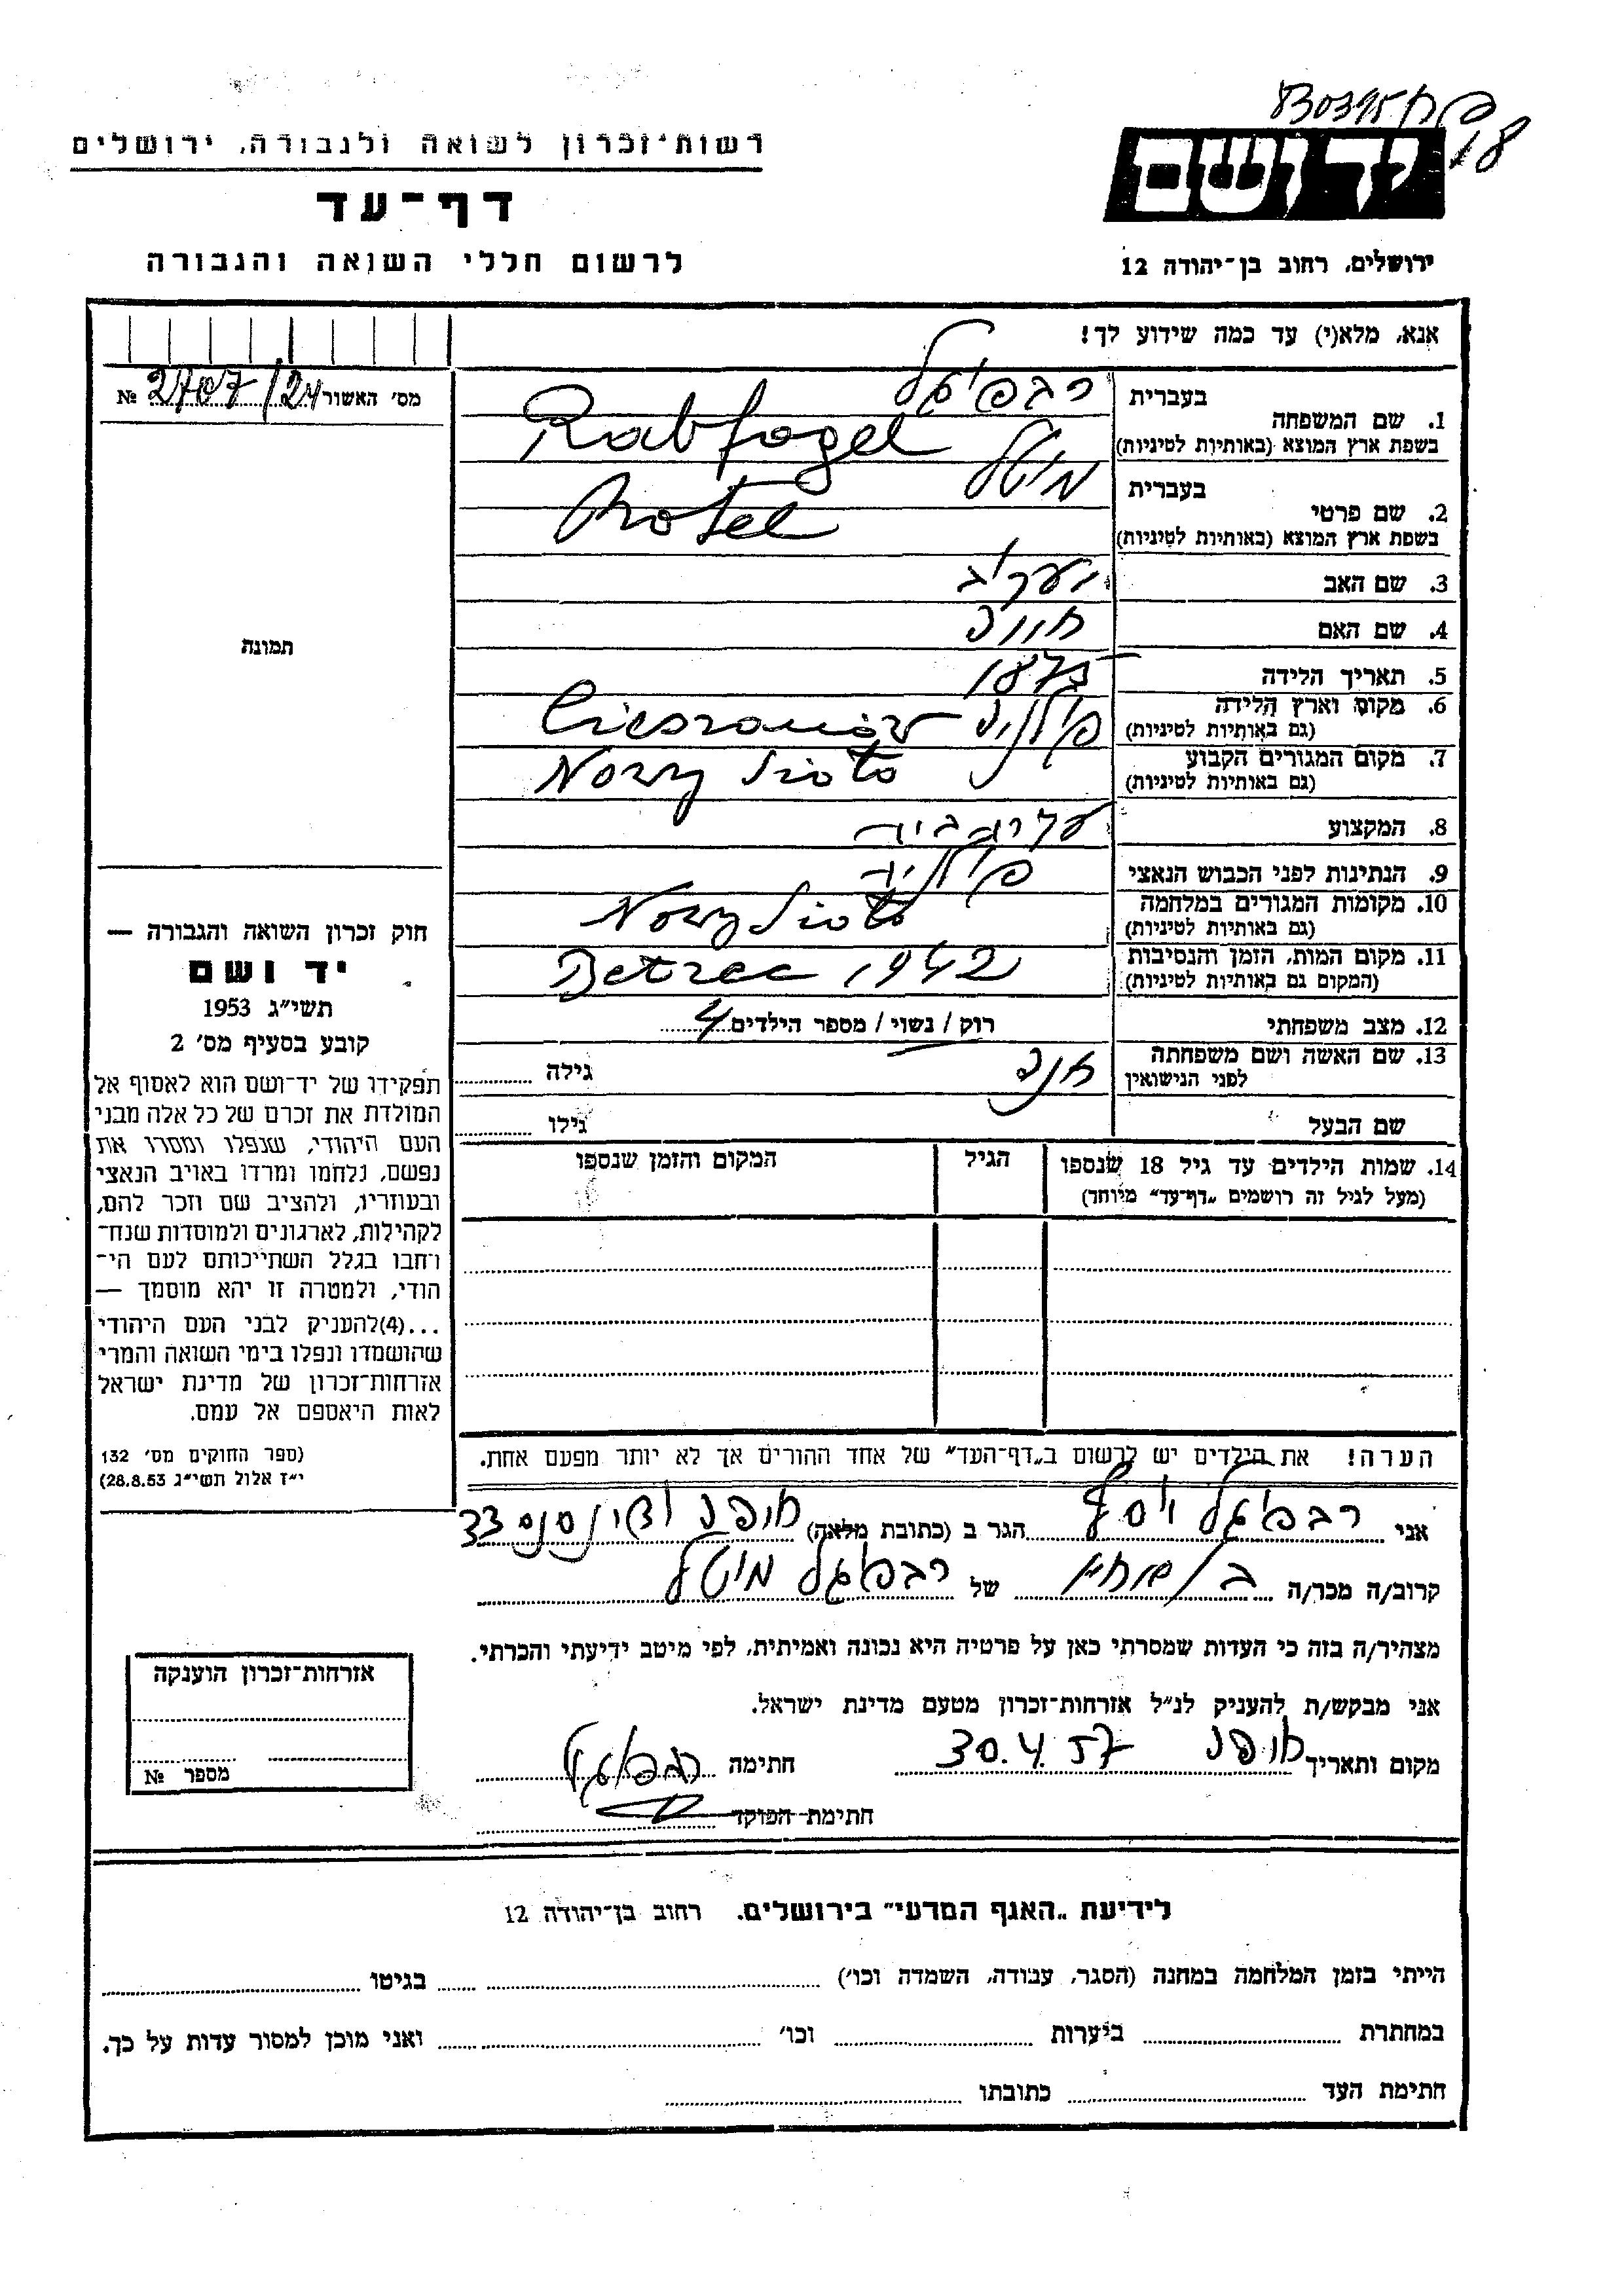 830395
18
יד ושם
ירושלים, רחוב בן־יהודה 12
רשות־זכרון לשואה ולגבורה, ירושלים
דף־עד
לרשום חללי השואה והגבורה
אנא, מלא(י) עד כמה שידוע לך!
מס' האשור 2707/24 №
תמונה
חוק זכרון השואה והגבורה —
יד ושם
תשי״ג 1953
קובע בסעיף מס' 2
תפקידו של יד־ושם הוא לאסוף אל
המולדת את זכרם של כל אלה מבני
העם היהודי, שנפלו ומסרו את
נפשם, נלחמו ומרדו באויב הנאצי
ובעוזריו, ולהציב שם וזכר להם,
לקהילות, לארגונים ולמוסדות שנח־
רחבו בגלל השתייכותם לעם הי־
הודי, ולמטרה זו יהא מוסמך —
...(4)להעניק לבני העם היהודי
שהושמדו ונפלו בימי השואה והמרי
אזרחות־זכרון של מדינת ישראל
לאות היאספם אל עמם.
(ספר החוקים מס' 132
י״ז אלול תשי״ג 28.8.53)
1. שם המשפחה בעברית רבפוגל
בשפת ארץ המוצא (באותיות לטיניות) Rabfogel
2. שם פרטי בעברית מוטל
בשפת ארץ המוצא (באותיות לטיניות) Motel
3. שם האב יעקב
4. שם האם חווה
5. תאריך הלידה 1875
6. מקום וארץ הלידה פולניה Cieszanów
(גם באותיות לטיניות)
7. מקום המגורים הקבוע Nowy Sioło
(גם באותיות לטיניות)
8. המקצוע
9. הנתינות לפני הכבוש הנאצי פולניה
10. מקומות המגורים במלחמה Nowy Sioło
(גם באותיות לטיניות)
11. מקום המות, הזמן והנסיבות Betzec 1942
(המקום גם באותיות לטיניות)
12. מצב משפחתי רוק / נשוי / מספר הילדים 4
13. שם האשה ושם משפחתה חנה גילה
לפני הנישואין
שם הבעל גילו
14. שמות הילדים עד גיל 18 שנספו הגיל המקום והזמן שנספו
(מעל לגיל זה רושמים „דף־עד״ מיוחד)
הערה! את הילדים יש לרשום ב„דף־העד״ של אחד ההורים אך לא יותר מפעם אחת.
אני רבפוגל יוסף הגר ב (כתובת מלאה) חיפה 33
קרוב/ה מכר/ה של רבפוגל מוטל
מצהיר/ה בזה כי העדות שמסרתי כאן על פרטיה היא נכונה ואמיתית, לפי מיטב ידיעתי והכרתי.
אני מבקש/ת להעניק לנ״ל אזרחות־זכרון מטעם מדינת ישראל.
מקום ותאריך חיפה 30.4.57 חתימה רבפוגל
חתימת הפוקד
אזרחות־זכרון הוענקה
מספר №
לידיעת „האגף המדעי״ בירושלים, רחוב בן־יהודה 12
הייתי בזמן המלחמה במחנה (הסגר, עבודה, השמדה וכו') בגיטו
במחתרת ביערות וכו' ואני מוכן למסור עדות על כך.
חתימת העד כתובתו